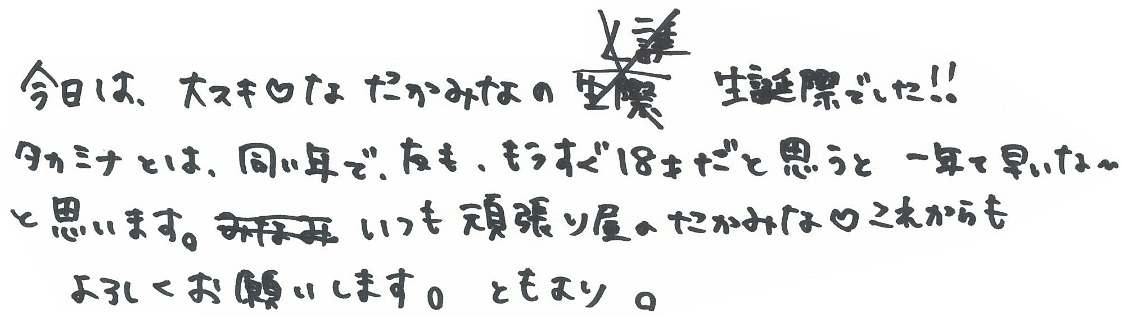 今日は、大スキ♡な たかみなの 生誕際でした!!
タカミナとは、同い年で、友も、もうすぐ18才だと思うと 一年て早いな〜
と思います。 いつも頑張り屋のたかみな♡これからも
よろしくお願いします。 ともより。